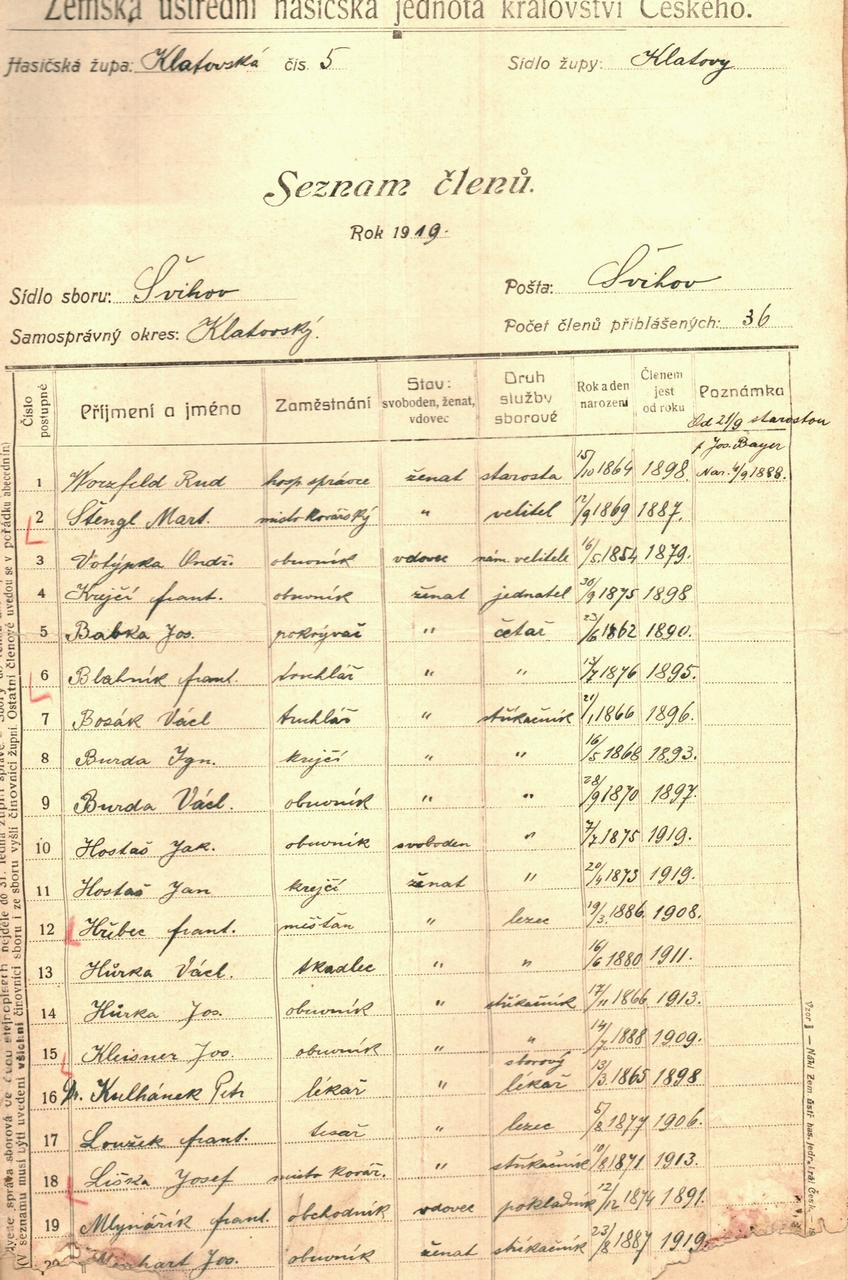 Zemská ústřední hasičská jednota království Českého.
Hasičská župa: Klatovská čís. 5 Sídlo župy: Klatovy
Seznam členů.
Rok 1919.
Sídlo sboru: Švihov Pošta: Švihov
Samosprávný okres: Klatovský. Počet členů přihlášených: 36
Číslo postupné Příjmení a jméno Zaměstnání Stav: svoboden, ženat, vdovec Druh služby sborové Rok a den narození Členem jest od roku Poznámka
Od 21/9 starostou
p Jos. Bayer
1 Rud hosp. správce ženat starosta 15/10 1864 1898 Nar. 4/9 1888.
2 Štengl Mart. místo kovářský " velitel 12/9 1869 1887.
3 Votýpka Ondř. obuvník vdovec nám. velitele 16/5 1854 1879.
4 Krejčí frant. obuvník ženat jednatel 30/9 1875 1898
5 Babka Jos. pokrývač " četař 23/6 1862 1890.
6 Blahník frant. truhlář " " 13/7 1876 1895.
7 Bosák Václ truhlář " stříkačník 21/1 1866 1896.
8 Burda Ign. krejčí " " 16/5 1868 1893.
9 Burda Václ. obuvník " " 28/9 1870 1897.
10 Hostaš Jak. obuvník svoboden " 7/7 1875 1919.
11 Hostaš Jan krejčí ženat " 20/4 1873 1919.
12 Hřebec frant. měšťan " lezec 19/3 1886. 1908.
13 Hůrka Václ. tkadlec " " 16/6 1880 1911.
14 Hůrka Jos. obuvník " stříkačník 17/11 1866 1913.
15 Kleisner Jos. obuvník " " 14/7 1888 1909.
16 Dr. Kulhánek Petr lékař " sborový lékař 13/3 1865 1898
17 Loužek frant. tesař " lezec 5/8 1877 1906.
18 Liška Josef místo kovář. " stříkačník 10/8 1871 1913.
19 Mlynářík frant. obchodník vdovec pokladník 12/12 1874 1891.
20 Jos. obuvník ženat stříkačník 23/8 1887 1919.